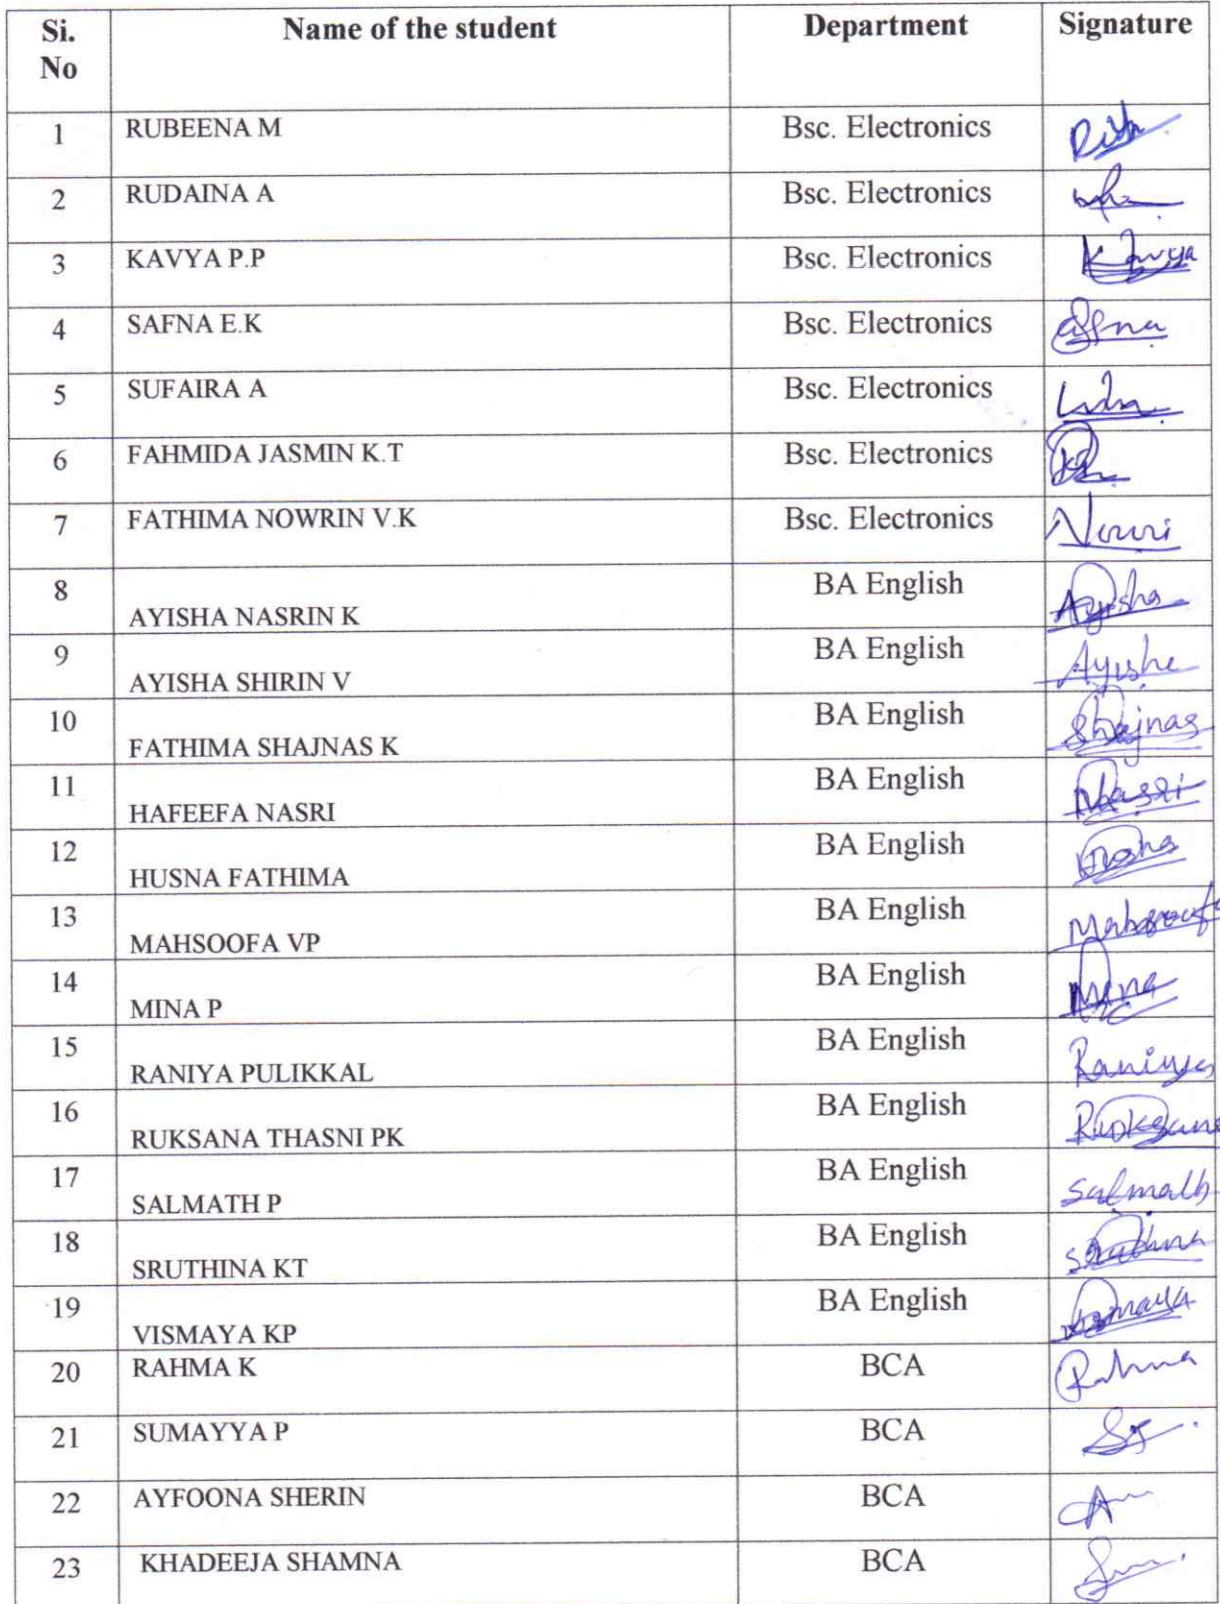 Si. No Name of the student Department Signature
1 RUBEENA M Bsc. Electronics
2 RUDAINA A Bsc. Electronics
3 KAVYA P.P Bsc. Electronics Kavya
4 SAFNA E.K Bsc. Electronics
5 SUFAIRA A Bsc. Electronics
6 FAHMIDA JASMIN K.T Bsc. Electronics
7 FATHIMA NOWRIN V.K Bsc. Electronics
8 AYISHA NASRIN K BA English Ayisha
9 AYISHA SHIRIN V BA English
10 FATHIMA SHAJNAS K BA English Shajnas
11 HAFEEFA NASRI BA English
12 HUSNA FATHIMA BA English
13 MAHSOOFA VP BA English
14 MINA P BA English Mina
15 RANIYA PULIKKAL BA English Raniya
16 RUKSANA THASNI PK BA English
17 SALMATH P BA English Salmath
18 SRUTHINA KT BA English
19 VISMAYA KP BA English
20 RAHMA K BCA Rahma
21 SUMAYYA P BCA
22 AYFOONA SHERIN BCA
23 KHADEEJA SHAMNA BCA